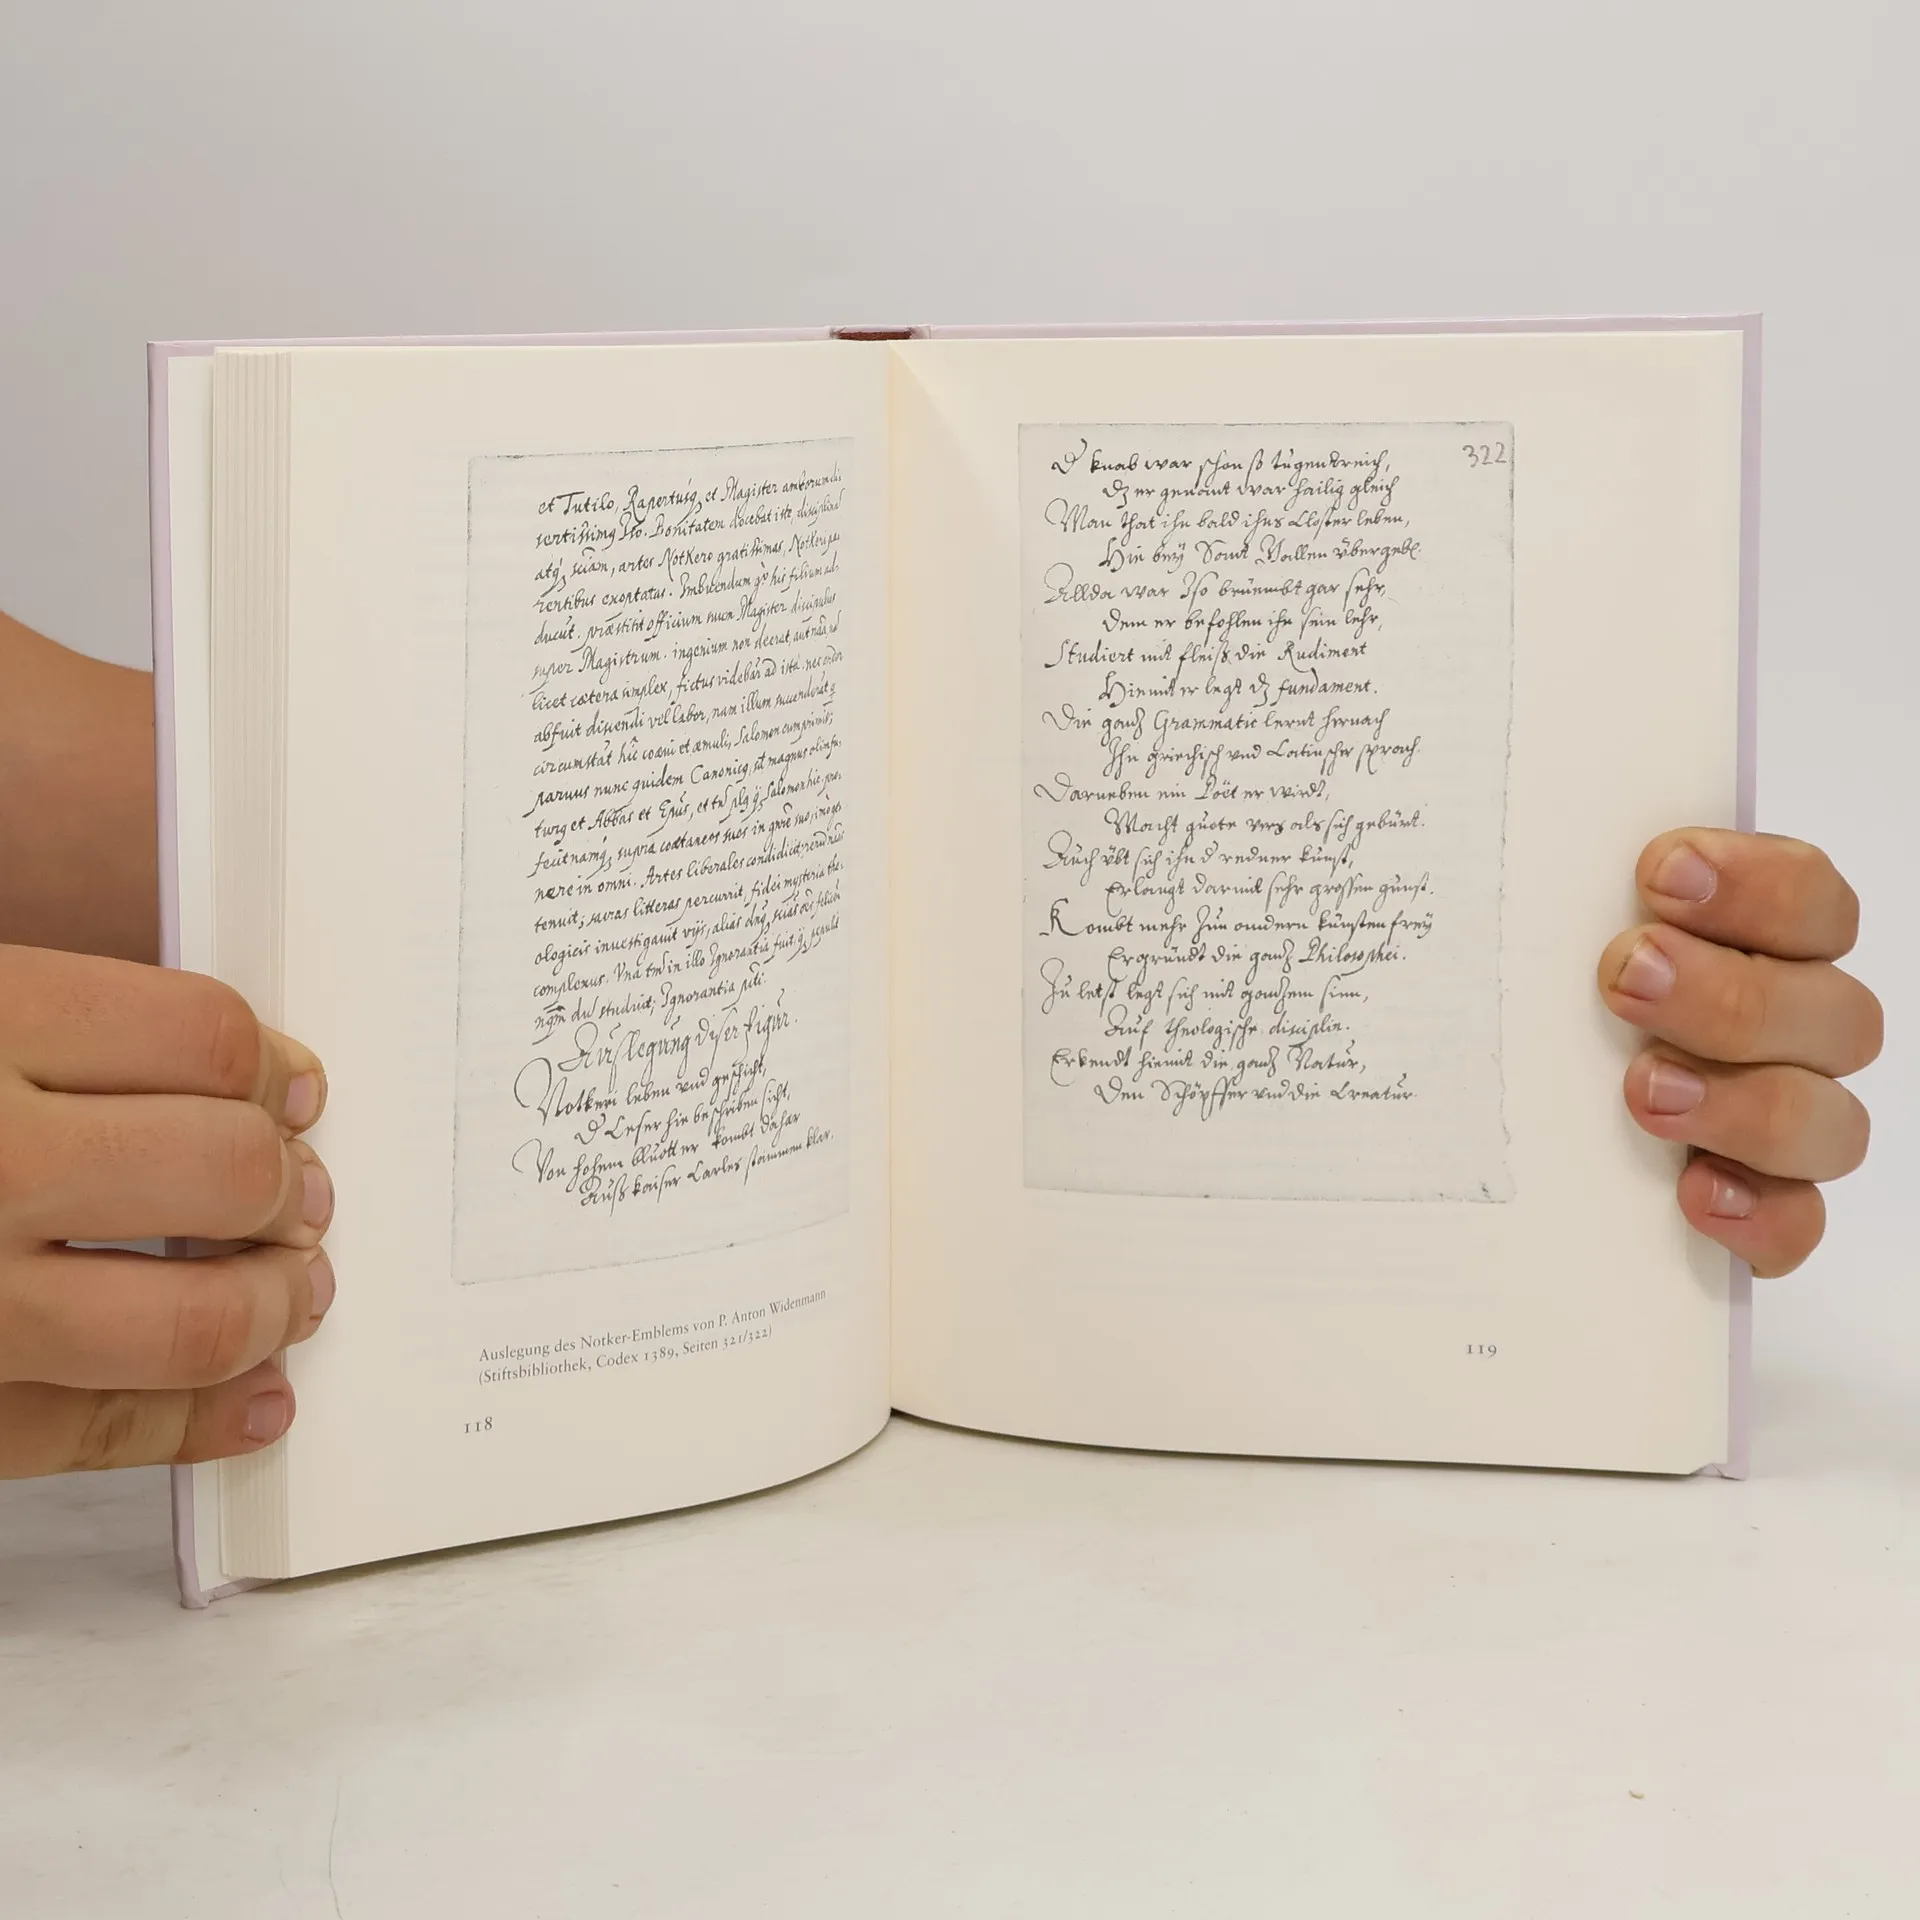 et Tutilo, Rapertusq et Magister amborum di-
sertissimq Iso. Bonitatem docebat iste, disciplinā
atq, sciām, artes Notkero gratissimas, Notkeri pa-
rentibus exoptatas. Imbuendum his filium ad-
ducūt. præstitit officium suum Magister discipulus
super Magistrum. ingenium non deerat,
licet cætera simplex, fictus videbat ad
abfuit discendi vel labor, nam illum succenderat
circumstāt hīc coævi et æmuli, Salomon cumprimis;
paruus nunc quidem Canonicq, sed magnus olim fu-
turq et Abbas et Epūs, et Salomon hic pro-
fecit namq, supra coætaneos suos in
nere in omni. Artes liberales condidicit,
tenuit; sacras litteras percurrit, fidei mysteria the-
ologicis inuestigauit vijs, alias
complexus. Vna tn̄ in illo Ignorantia fuit,
studuit; Ignorantia
Auslegung diser Figur.
Notkeri leben vnd geschicht,
D Leser hie beschriben sicht,
Von hohem bluott er kombt dahar
Auß kaiser Carles stammen klar.
Auslegung des Notker-Emblems von P. Anton Widenmann
(Stiftsbibliothek, Codex 1389, Seiten 321/322)
118
322
D knab war schon so tugendreich,
Dz er genant war hailig gleich
Man that ihn bald ins Closter leben,
Hie bey Sant Gallen übergebē.
Allda war Iso brüembt gar sehr,
Dem er befohlen ihn sein lehr,
Studiert mit fleiß die Rudiment
Hiemit er legt dz fundament.
Die gantz Grammatic lernt hernach
Ihn griechisch vnd Latinscher sprach.
Darneben ein Poët er wirdt,
Macht guote vers als sich gebürt.
Auch übt sich ihn d redner kunst,
Erlangt darmit sehr grossen gunst.
Kombt mehr zun andern künsten frey
Ergründt die gantz Philosophei.
Zu letst legt sich mit gantzem sinn,
Auf theologische disciplin.
Erkendt hiemit die gantz Natur,
Den Schöpffer vnd die Creatur.
119